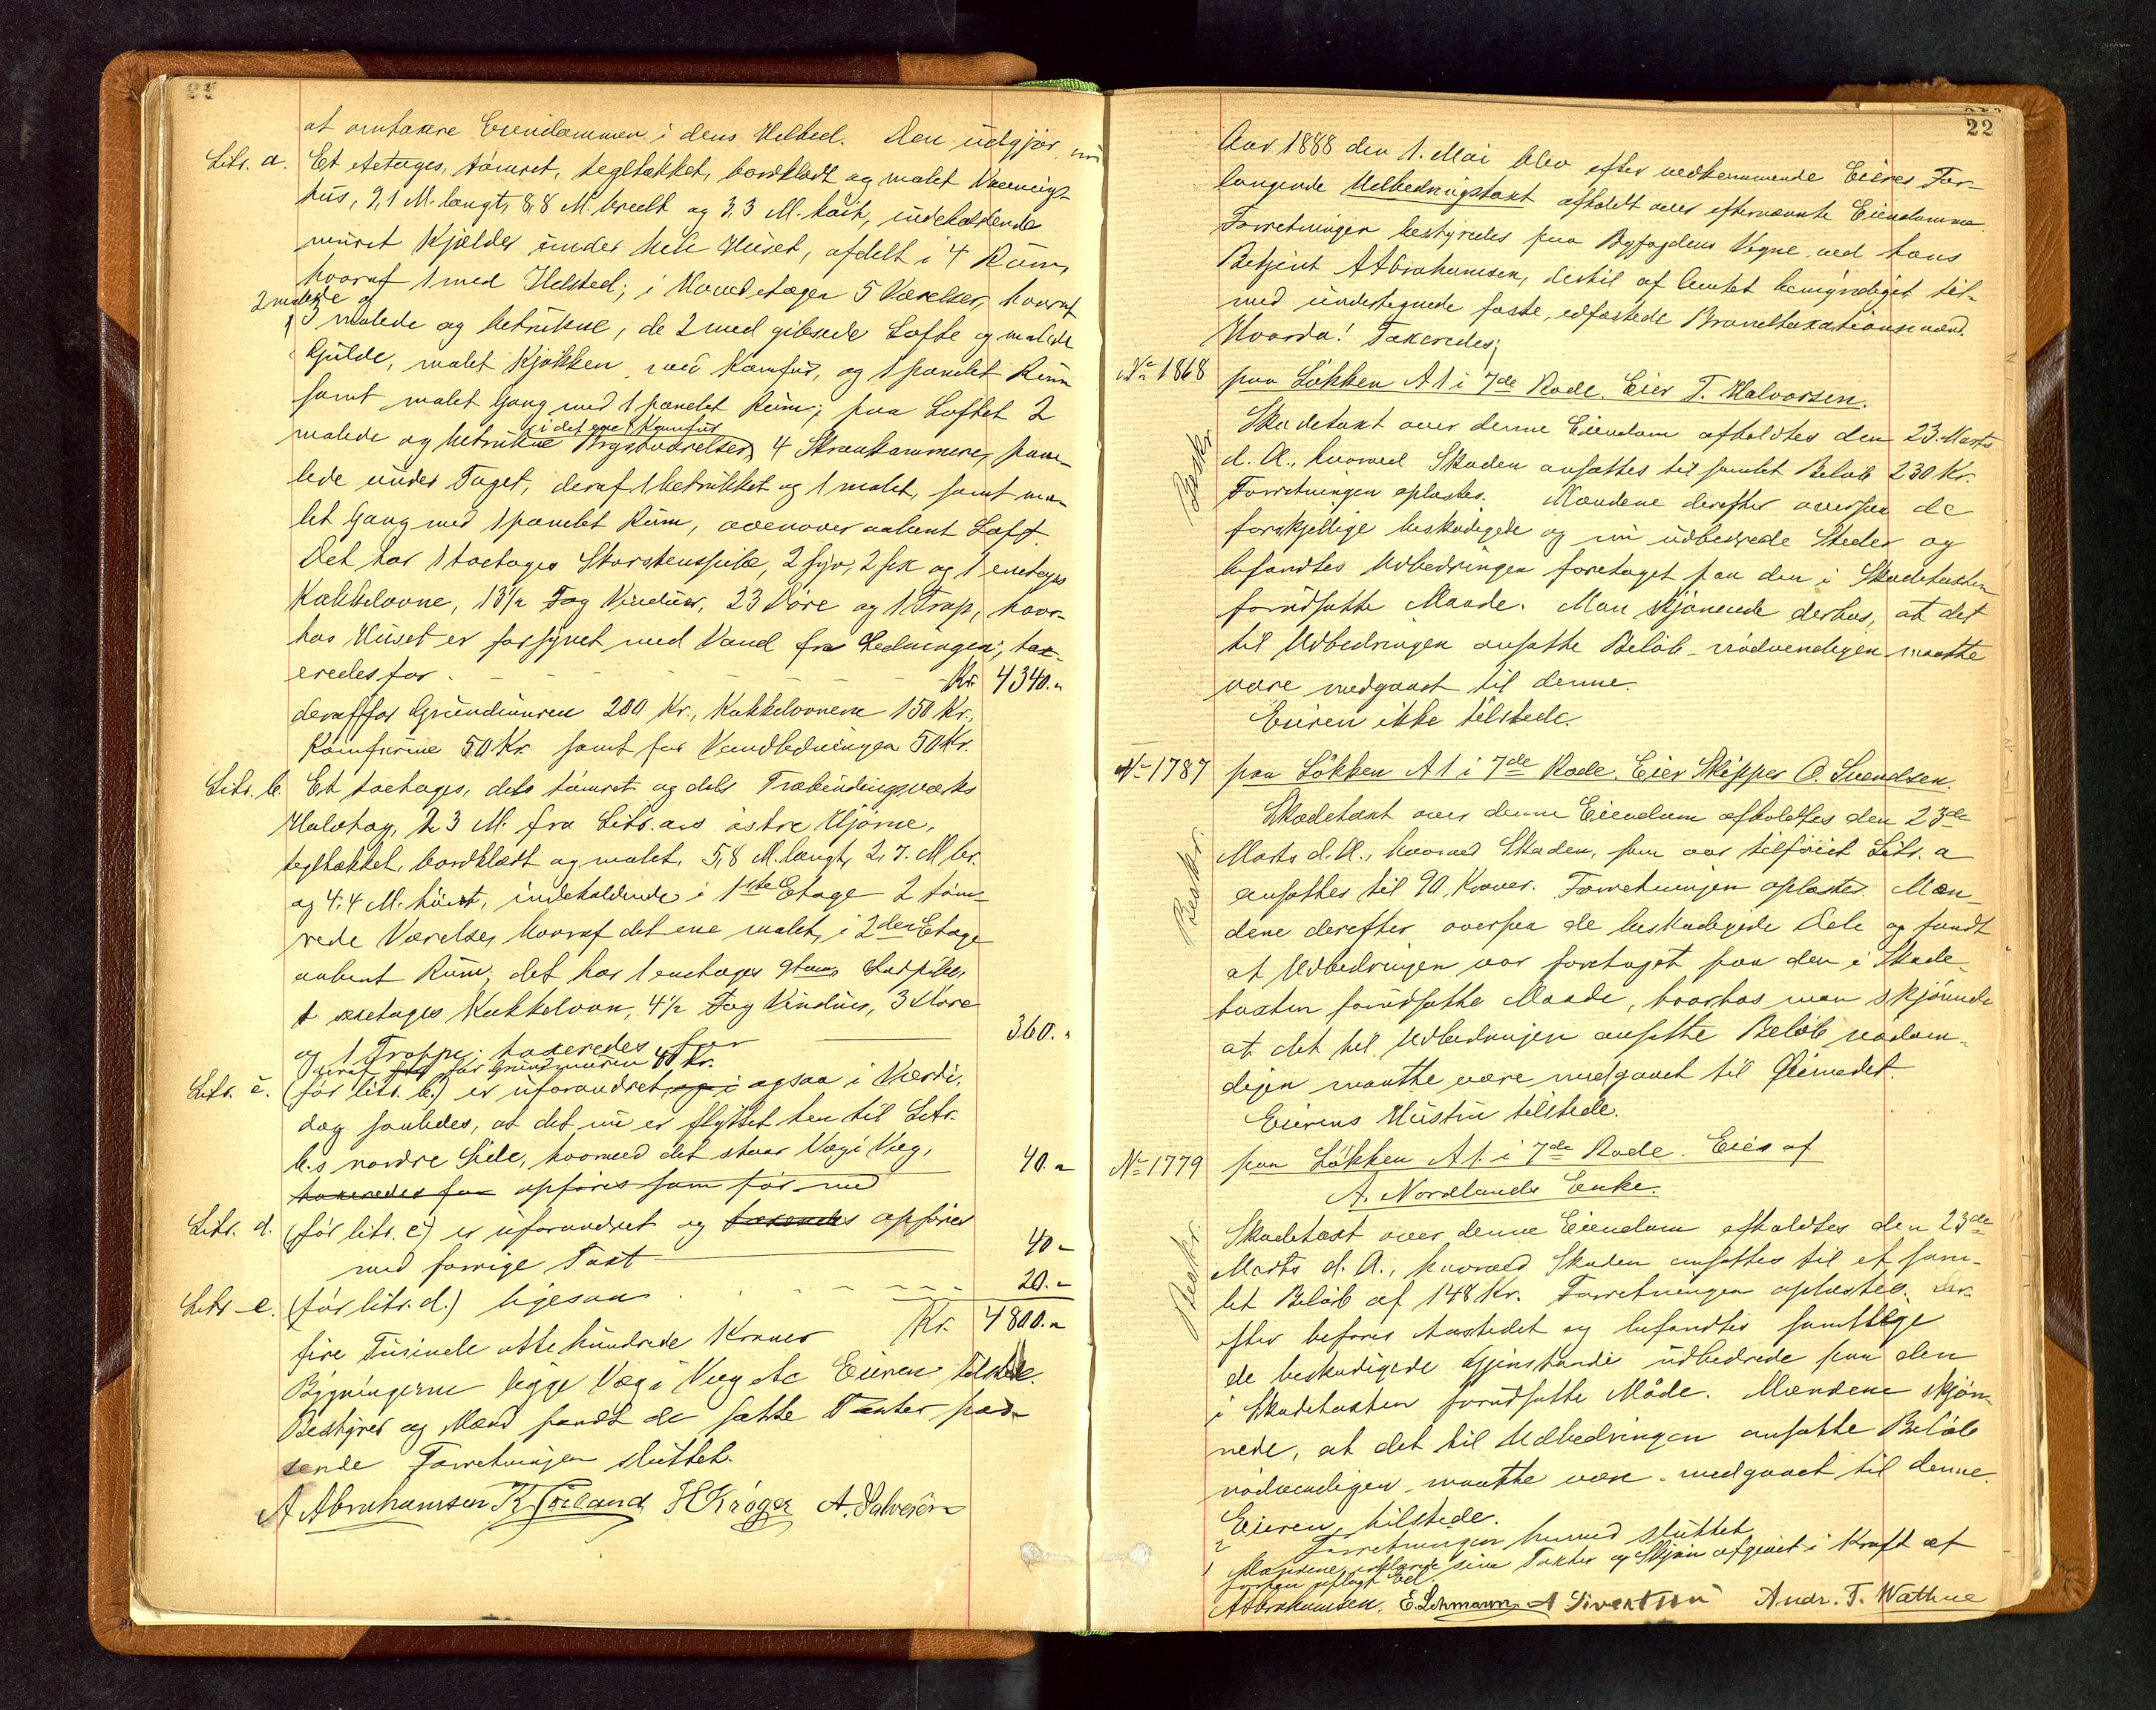 at omtaxere Eiendommen i dens Helhed. Den udgjør nu
Litr. a. Et etetages, tømret, tegltækket, bordklædt og malet Vaanings-
hus, 9,1 M. langt, 8,8 M. bredt og 3,3 M. høit, indeholdende
muret Kjelder under hele Huset, afdelt i 4 Rum,
hvoraf 1 med Ildsted; i Hovedetagen 5 Værelser, hvoraf
2 malede og
3 malede og betrukne, de 2 med gibsede Lofte og malede
Gulve, malet Kjøkken med Komfur, og 1 panelet Rum
samt malet Gang med 1 panelet Rum; paa Loftet 2
i det ene 1 Komfur
malede og betrukne Kvistværelser, 4 Skraakammere, pane-
lede under Taget, deraf 1 betrukket og 1 malet, samt ma-
let Gang med 1 panelet Rum, ovenover aabent Loft
Det har 1 toetages Skorstenspibe, 2 fyr, 2 sex og 1 enetages
Kakkelovne, 13½ Fag Vinduer, 23 Døre og 1 Trap, hvor-
hos Huset er forsynet med Vand fra Ledningen; tax-
eredes for Kr. 4340.-
deraf for Grundmuren 200 Kr., Kakkelovnene 150 Kr.,
Komfurene 50 Kr. samt for Vandledningen 50 Kr.
Litr. b. Et toetages, dels tømret og dels Træbindingsværks
Halvtag, 2,3 M. fra Litr. a.s østre Hjørne,
tegltækket, bordklædt og malet, 5,8 M. langt, 2,7 M. br.
og 4,4 M. høit, indeholdende i 1ste Etage 2 tøm-
rede Værelser, hvoraf det ene malet, i 2den Etage
aabent Rum; det har 1 enetages
1 enetages Kakkelovn, 4½ Fag Vinduer, 3 Døre
og 1 Trappe; taxeredes for 360.-
deraf for Grundmuren 40 Kr.
Litr. c. (før litr. b.) er uforandret, ogsaa i Værdi,
dog saaledes, at det nu er flyttet hen til Litr.
b.s nordre Side, hvormed det staar Væg i Væg,
taxeredes for opføres som før med 40.-
Litr. d. (før litr. c) er uforandret og taxeredes opføres
med forrige Taxt 40.-
Litr. e. (før litr. d.) ligesaa 20.-
fire Tusinde otte hundrede Kroner Kr. 4800.-
Bygningerne ligge Væg i Væg etc Eieren tilstede.
Bestyrer og Mænd fandt de satte Taxter pas-
sende Forretningen sluttet.
A Abrahamsen K Tjeland H Krøger A. Salvesen
22
Aar 1888 den 1. Mai blev efter vedkommende Eieres For-
langende Udbedringstaxt afholdt over efternævnte Eiendomme.
Forretningen bestyredes paa Byfogdens Vegne ved hans
Betjent A Abrahamsen, dertil af Amtet bemyndiget til-
med undertegnede faste, edfæstede Brandtaxationsmænd.
Hvorda! Taxeredes:
No 1868 paa Løkken A 1 i 7de Rode. Eier T. Halvorsen.
Beskr.
Skadetaxt over denne Eiendom afholdtes den 23. Marts
d. A., hvorved Skaden ansattes til samlet Beløb 230 Kr.
Forretningen oplæstes. Mændene derefter oversaa de
forskjellige beskadigede og nu udbedrede Steder og
befandtes Udbedringen foretaget paa den i Skadetaxten
forudsatte Maade. Man skjønnede derhos, at det
til Udbedringen ansatte Beløb nødvendigen maatte
være medgaaet til denne.
Eieren ikke tilstede.
No 1787 paa Løkken A 1 i 7de Rode. Eier Skipper O. Svendsen.
Beskr.
Skadetaxt over denne Eiendom afholdtes den 23de
Marts d. A., hvorved Skaden, som var tilføiet Litr. a
ansattes til 90 Kroner. Forretningen oplæstes. Mæn-
dene derefter oversaa de beskadigede Dele og fandt
at Udbedringen var foretaget paa den i Skade-
taxten forudsatte Maade, hvorhos man skjønnede
at det til Udbedringen ansatte Beløb nødven-
digen maatte være medgaaet til Øiemedet.
Eierens Hustru tilstede.
No 1779 paa Løkken A 1. i 7de Rode. Eies af
A. Nordlands Enke.
Beskr.
Skadetaxt over denne Eiendom afholdtes den 23de
Marts d. A., hvorved Skaden ansattes til et sam-
let Beløb af 148 Kr. Forretningen oplæstes. Der-
efter befores Aastedet og befandtes samtlige
de beskadigede Gjenstande udbedrede paa den
i Skadetaxten forudsatte Måde. Mændene skjøn-
nede, at det til Udbedringen ansatte Beløb
nødvendigen maatte være medgaaet til denne.
Eieren tilstede.
Forretningen hermed sluttet
Mændene erklærede sine Taxter og Skjøn afgivet i Kraft af
forhen aflagt Ed.
A Abrahamsen. E. Lehmann A Sivertsen Andr. T. Wathne